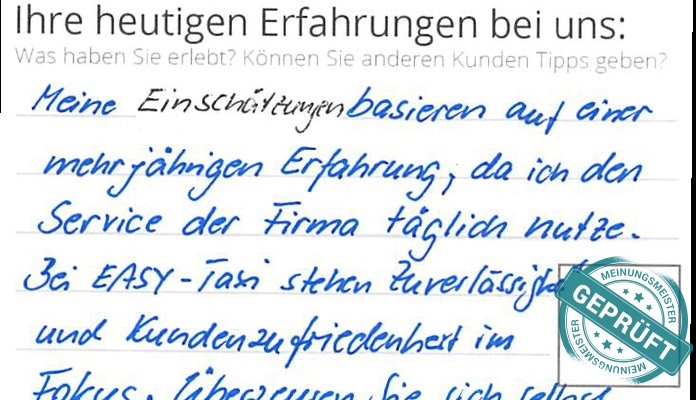 Ihre heutigen Erfahrungen bei uns:
Was haben Sie erlebt? Können Sie anderen Kunden Tipps geben?
Meine Einschätzungen basieren auf einer
mehrjährigen Erfahrung, da ich den
Service der Firma täglich nutze.
Bei EASY-Taxi stehen Zuverlässigkeit
und Kundenzufriedenheit im
Fokus. Überzeugen Sie sich selbst
MEINUNGSMEISTER
GEPRÜFT
MEINUNGSMEISTER